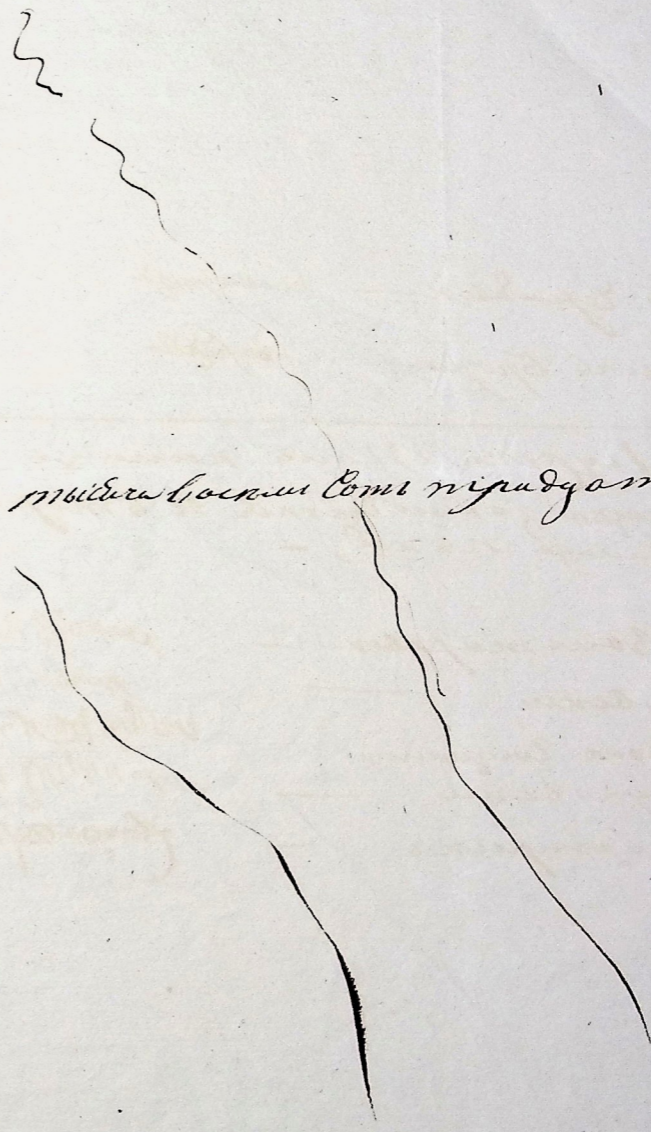 тысеча восемь сотъ тридцат